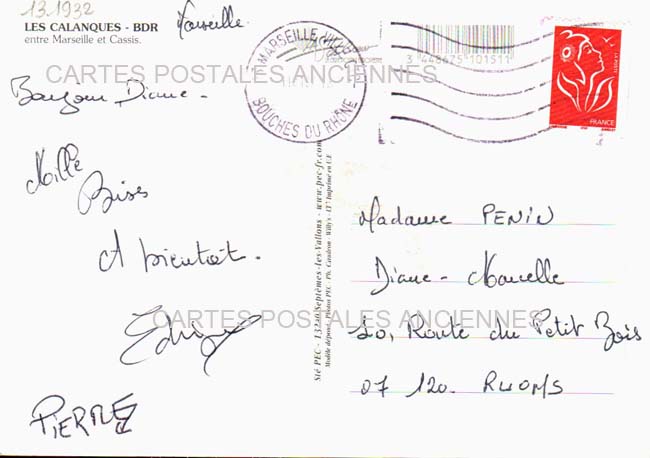 13.1932
LES CALANQUES - BDR
entre Marseille et Cassis.
Marseille.
Bonjour Diane -
Mille
Bises
A bientôt.
PIERRE
CARTES POSTALES ANCIENNES
CARTES POSTALES ANCIENNES
MARSEILLE
BOUCHES DU RHÔNE
3 448675 101511
FRANCE
Sté PEC - 13240 Septèmes-les-Vallons - www.pec-fr.com
Modèle déposé - Photos PEC - Ph. Caudron - Willy's - IT³ Imprimé en UE
Madame PENIN
Diane - Marcelle
20, Route du Petit Bois
07 120. RUOMS